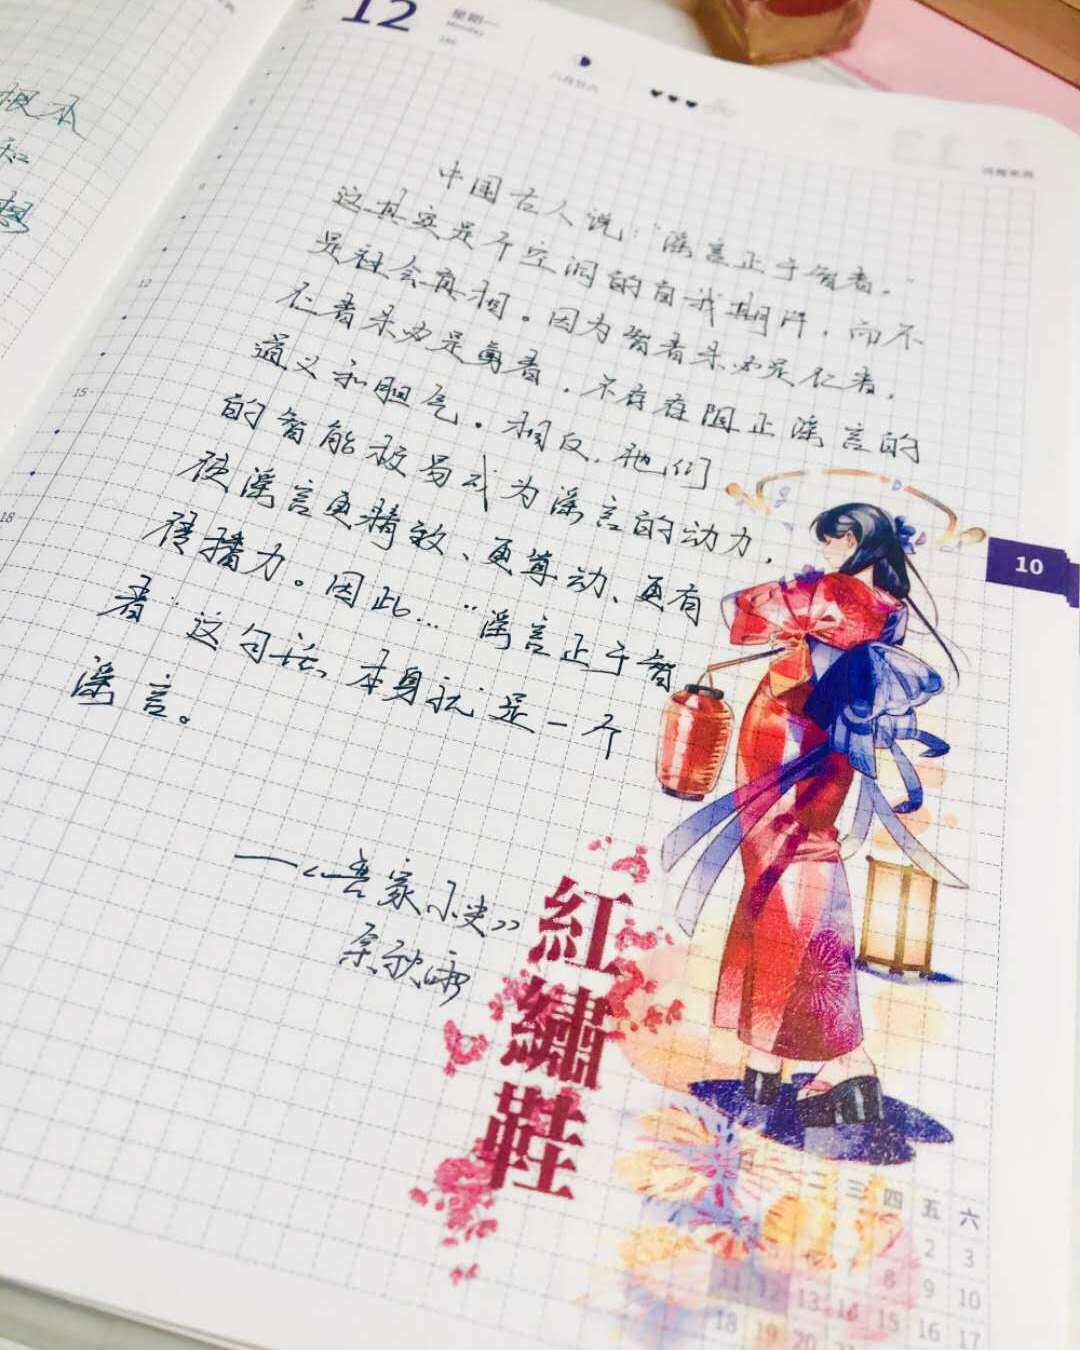 12
星期一
Monday
中国古人说："谣言止于智者。"
这其实是个空洞的自我期许，而不
是社会真相。因为智者未必是仁者，
仁者未必是勇者，不存在阻止谣言的
道义和胆气。相反，他们
的智能极易成为谣言的动力，
使谣言更精致、更生动、更有
传播力。因此…"谣言止于智
者"这句话，本身就是一个
谣言。
——《吾家小史》
余秋雨
紅繡鞋
10
12
15
18
根本
和
想
二 三 四 五 六
1 2 3
7 8 9 10
11 12 13 14 15 16 17
18 19 20